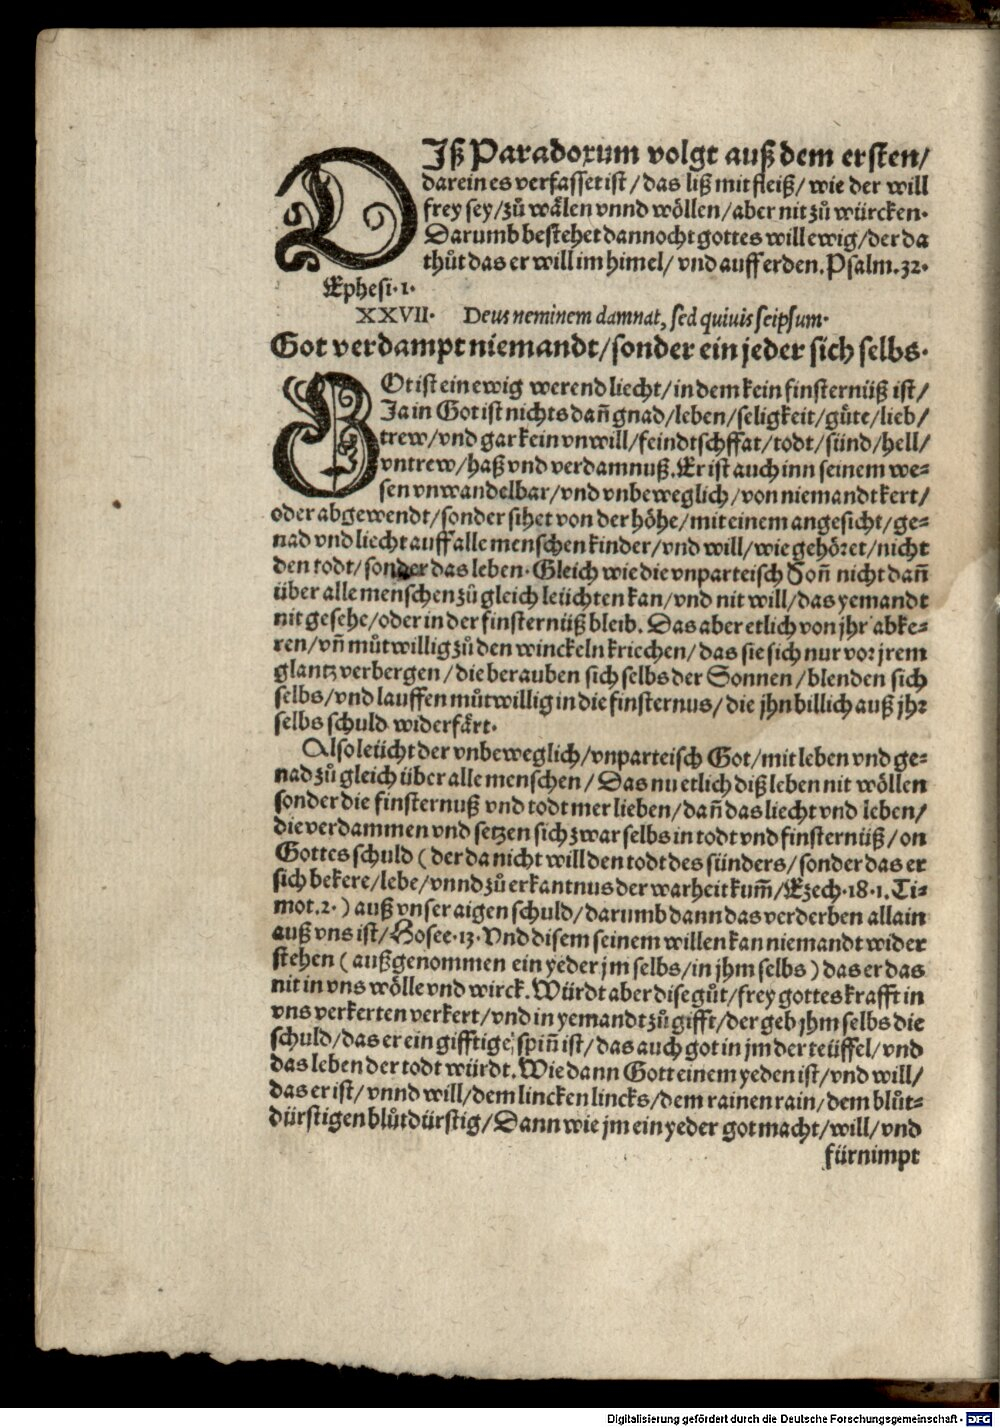 DIß Paradoxum volgt auß dem ersten/
darein es verfasset ist/ das liß mit fleiß/ wie der will
frey sey/ zů wälen vnnd wöllen/ aber nit zů würcken.
Darumb bestehet dannocht gottes will ewig/ der da
thůt das er will im himel/ vnd auff erden. Psalm. 32.
Ephesi. 1.
XXVII. Deus neminem damnat, sed quiuis seipsum.
Got verdampt niemandt/ sonder ein jeder sich selbs.
GOt ist ein ewig werend liecht/ in dem kein finsternüß ist/
Ja in Got ist nichts dañ gnad/ leben/ seligkeit/ gůte/ lieb/
trew/ vnd gar kein vnwill/ feindtschffat/ todt/ sünd/ hell/
vntrew/ haß vnd verdamnuß. Er ist auch inn seinem we=
sen vnwandelbar/ vnd vnbeweglich/ von niemandt kert/
oder abgewendt/ sonder sihet von der höhe/ mit einem angesicht/ ge=
nad vnd liecht auff alle menschen kinder/ vnd will/ wie gehöret/ nicht
den todt/ sonder das leben. Gleich wie die vnparteisch Soñ nicht dañ
über alle menschen zů gleich leüchten kan/ vnd nit will/ das yemandt
nit gesehe/ oder in der finsternüß bleib. Das aber etlich von jhr abke=
ren/ vñ můtwillig zů den winckeln kriechen/ das sie sich nur vor jrem
glantz verbergen/ die berauben sich selbs der Sonnen/ blenden sich
selbs/ vnd lauffen můtwillig in die finsternus/ die jhn billich auß jhr
selbs schuld widerfärt.
Also leücht der vnbeweglich/ vnparteisch Got/ mit leben vnd ge=
nad zů gleich über alle menschen/ Das nu etlich diß leben nit wöllen
sonder die finsternuß vnd todt mer lieben/ dañ das liecht vnd leben/
die verdammen vnd setzen sich zwar selbs in todt vnd finsternüß/ on
Gottes schuld (der da nicht will den todt des sünders/ sonder das er
sich bekere/ lebe/ vnnd zů erkantnus der warheit kum̃/ Ezech. 18. 1. Ti=
mot. 2.) auß vnser aigen schuld/ darumb dann das verderben allain
auß vns ist/ Hosee. 13. Vnd disem seinem willen kan niemandt wider
stehen (außgenommen ein yeder jm selbs/ in jhm selbs) das er das
nit in vns wölle vnd wirck. Würdt aber dise gůt/ frey gottes krafft in
vns verkerten verkert/ vnd in yemandt zů gifft/ der geb jhm selbs die
schuld/ das er ein gifftige spiñ ist/ das auch got in jm der teüffel/ vnd
das leben der todt würdt. Wie dann Gott einem yeden ist/ vnd will/
das er ist/ vnnd will/ dem lincken lincks/ dem rainen rain/ dem blůt=
dürstigen blůtdürstig/ Dann wie jm ein yeder got macht/ will/ vnd
fürnimpt
Digitalisierung gefördert durch die Deutsche Forschungsgemeinschaft - DFG